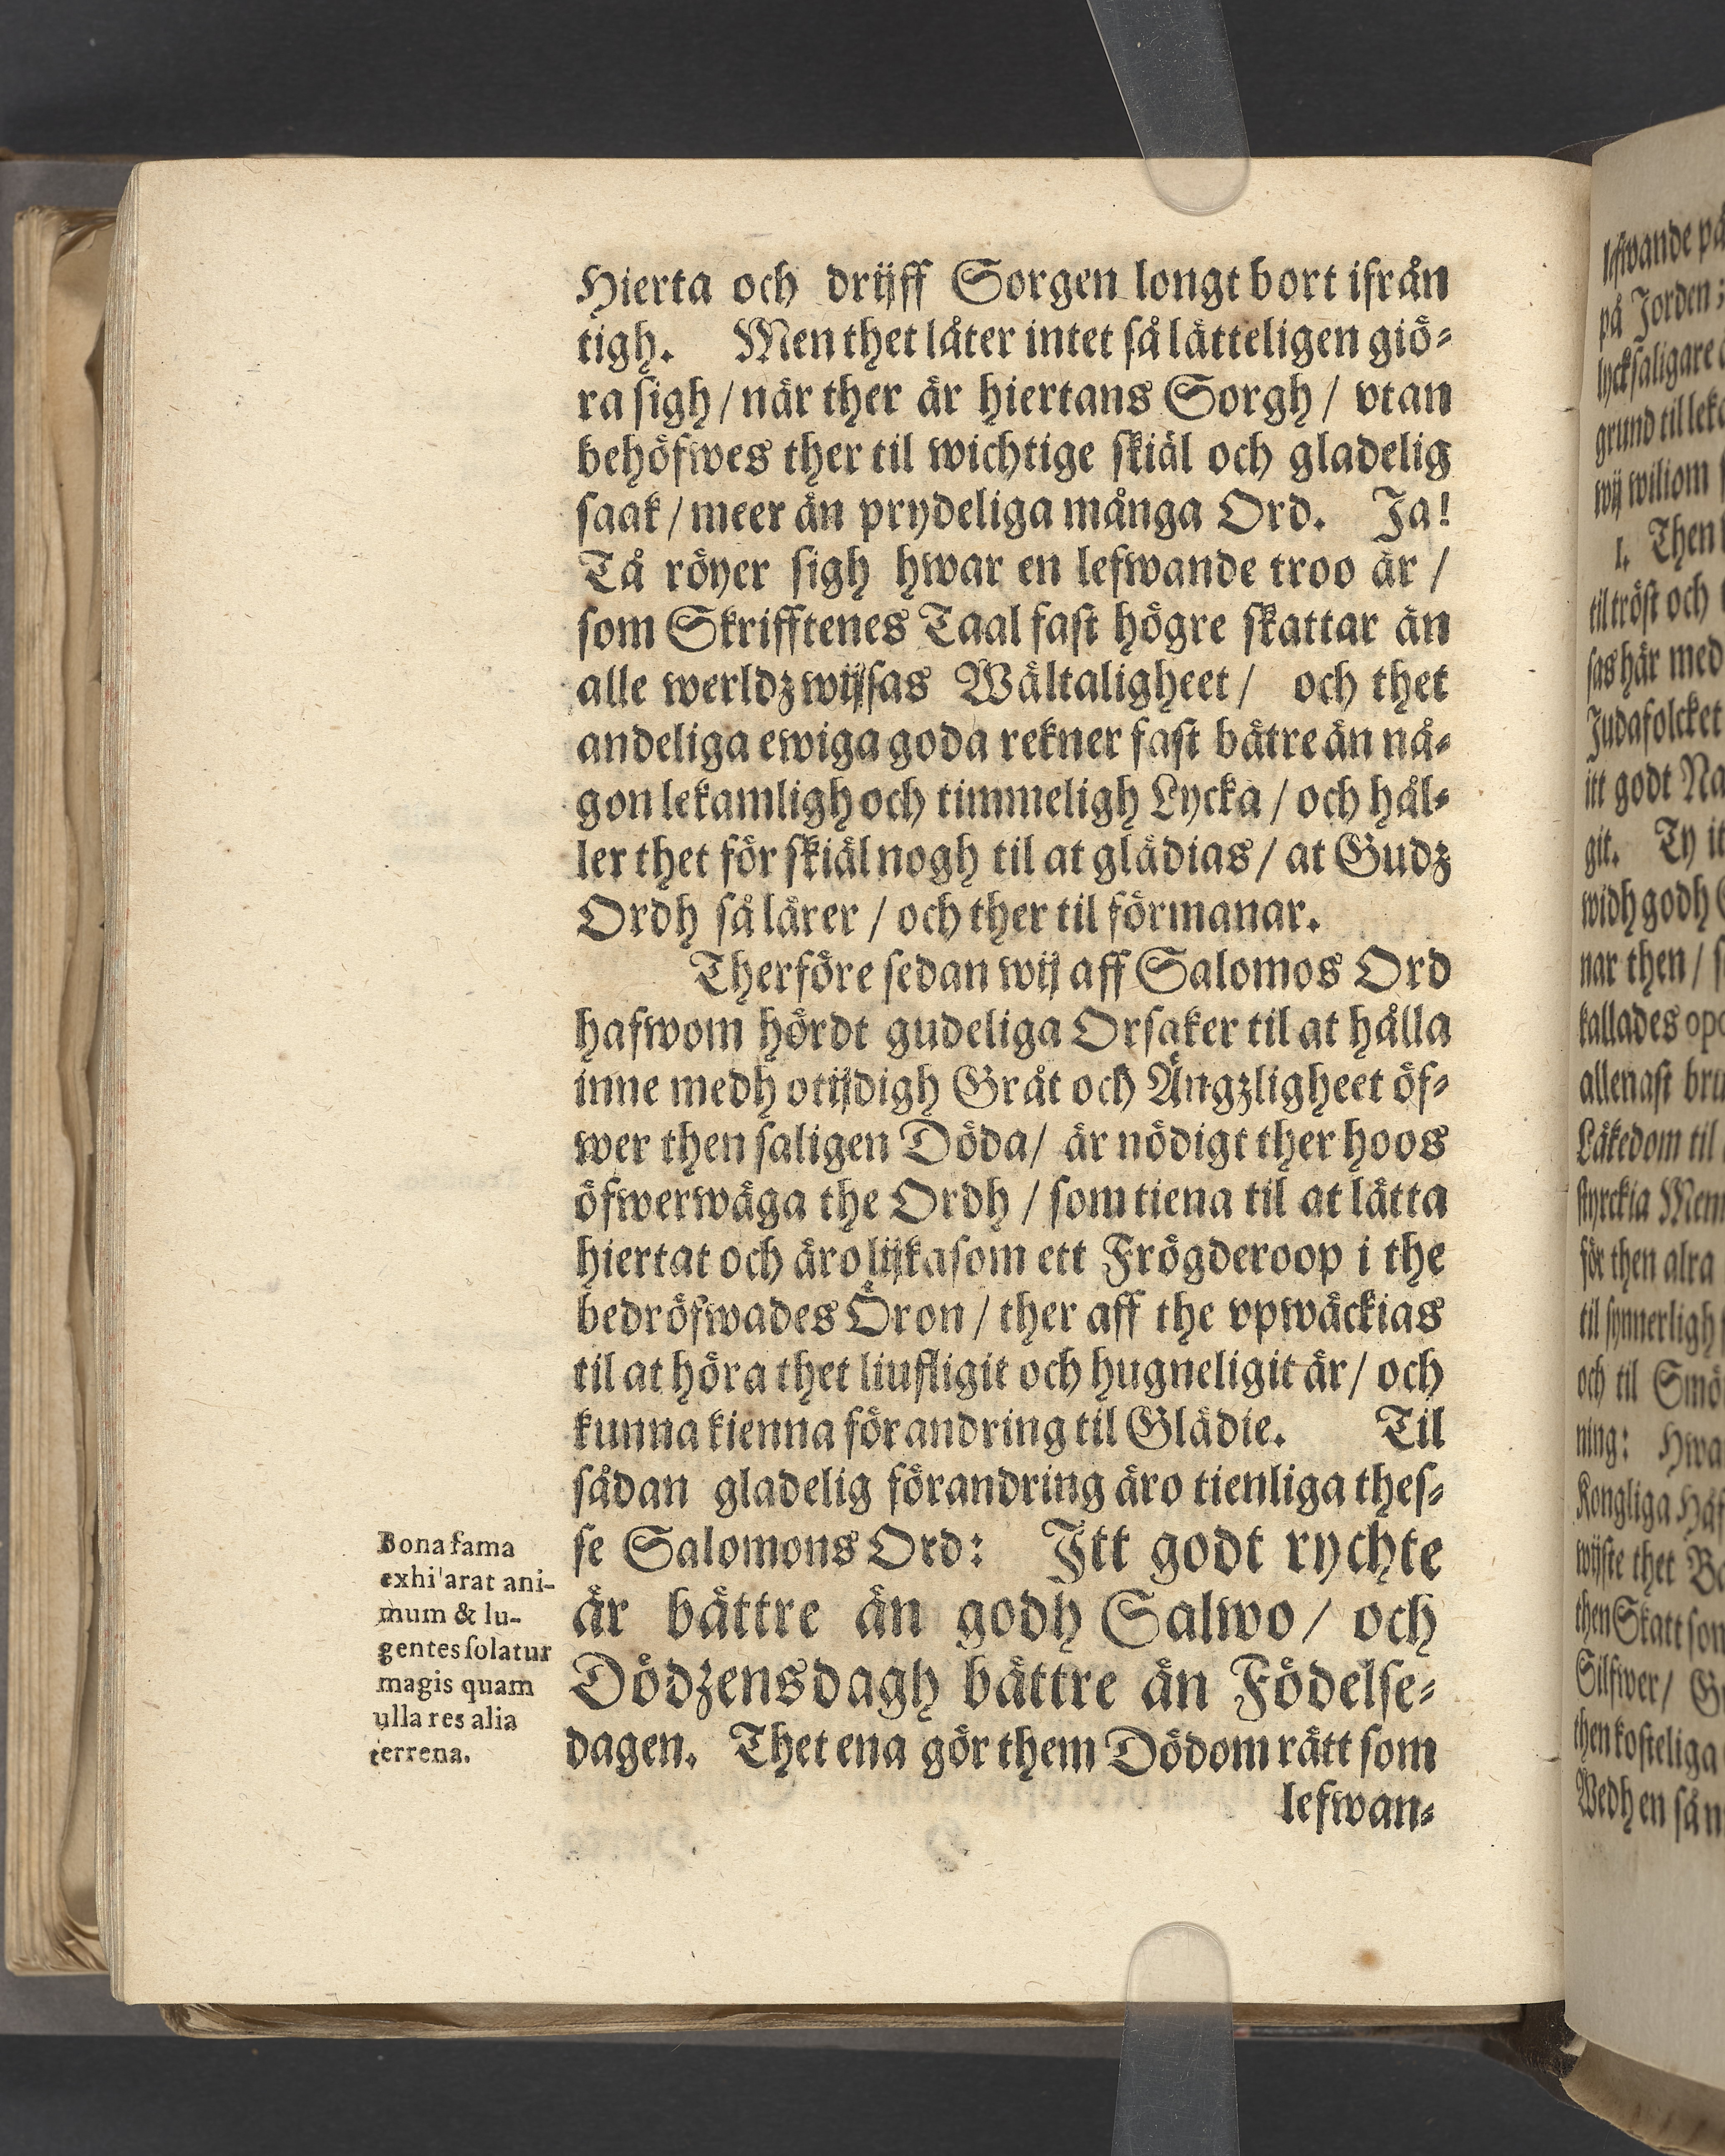 Hierta och drijff Sorgen longt bort ifrån
tigh. Men thet låter intet så lätteligen giö-
ra sigh / när ther är hiertans Sorgh / vtan
behöfwes ther til wichtige skiäl och gladelig
saak / meer än prydeliga många Ord. Ja!
Tå röyer sigh hwar en lefwande troo är /
som Skrifftenes Taal fast högre skattar än
alle werldz wijsas Wältaligheet / och thet
andeliga ewiga goda rekner fast bätre än nå-
gon lekamligh och timmeligh Lycka / och hål-
ler thet för skiäl nogh til at glädias / at Gudz
Ordh så lärer / och ther til förmanar.
Therföre sedan wij aff Salomos Ord
hafwom hördt gudeliga Orsaker til at hålla
inne medh otijdigh Gråt och Ängzligheet öf-
wer then saligen Döda / är nödigt ther hoos
öfwerwäga the Ordh / som tiena til at lätta
hiertat och äro lijka som ett Frögderoop i the
bedröfwades Öron / ther aff the vpwäckias
til at höra thet liufligit och hugneligit är / och
kunna kienna förandring til Glädie. Til
sådan gladelig förandring äro tienliga thes-
se Salomons Ord: Itt godt rychte
är bättre än godh Salwo / och
Dödzens dagh bättre än Födelse-
dagen. Thet ena gör them Dödom rätt som
lefwan-
Bona fama
exhi'arat ani-
mum & lu-
gentes solatur
magis quam
ulla res alia
terrena.
lefwande på
på Jorden;
lycksaligare
grund til
wij wiliom
1. Then
til tröst och
sas här med
Judafolcket
itt godt
git. Ty
widh godh
nar then /
kallades
allenast
Läkedom til
styrckia
för then alra
til synnerligh
och til
ning: Hwa
Kongliga
wijste thet
then Skatt
Silfwer /
then kosteliga
Wedh en så